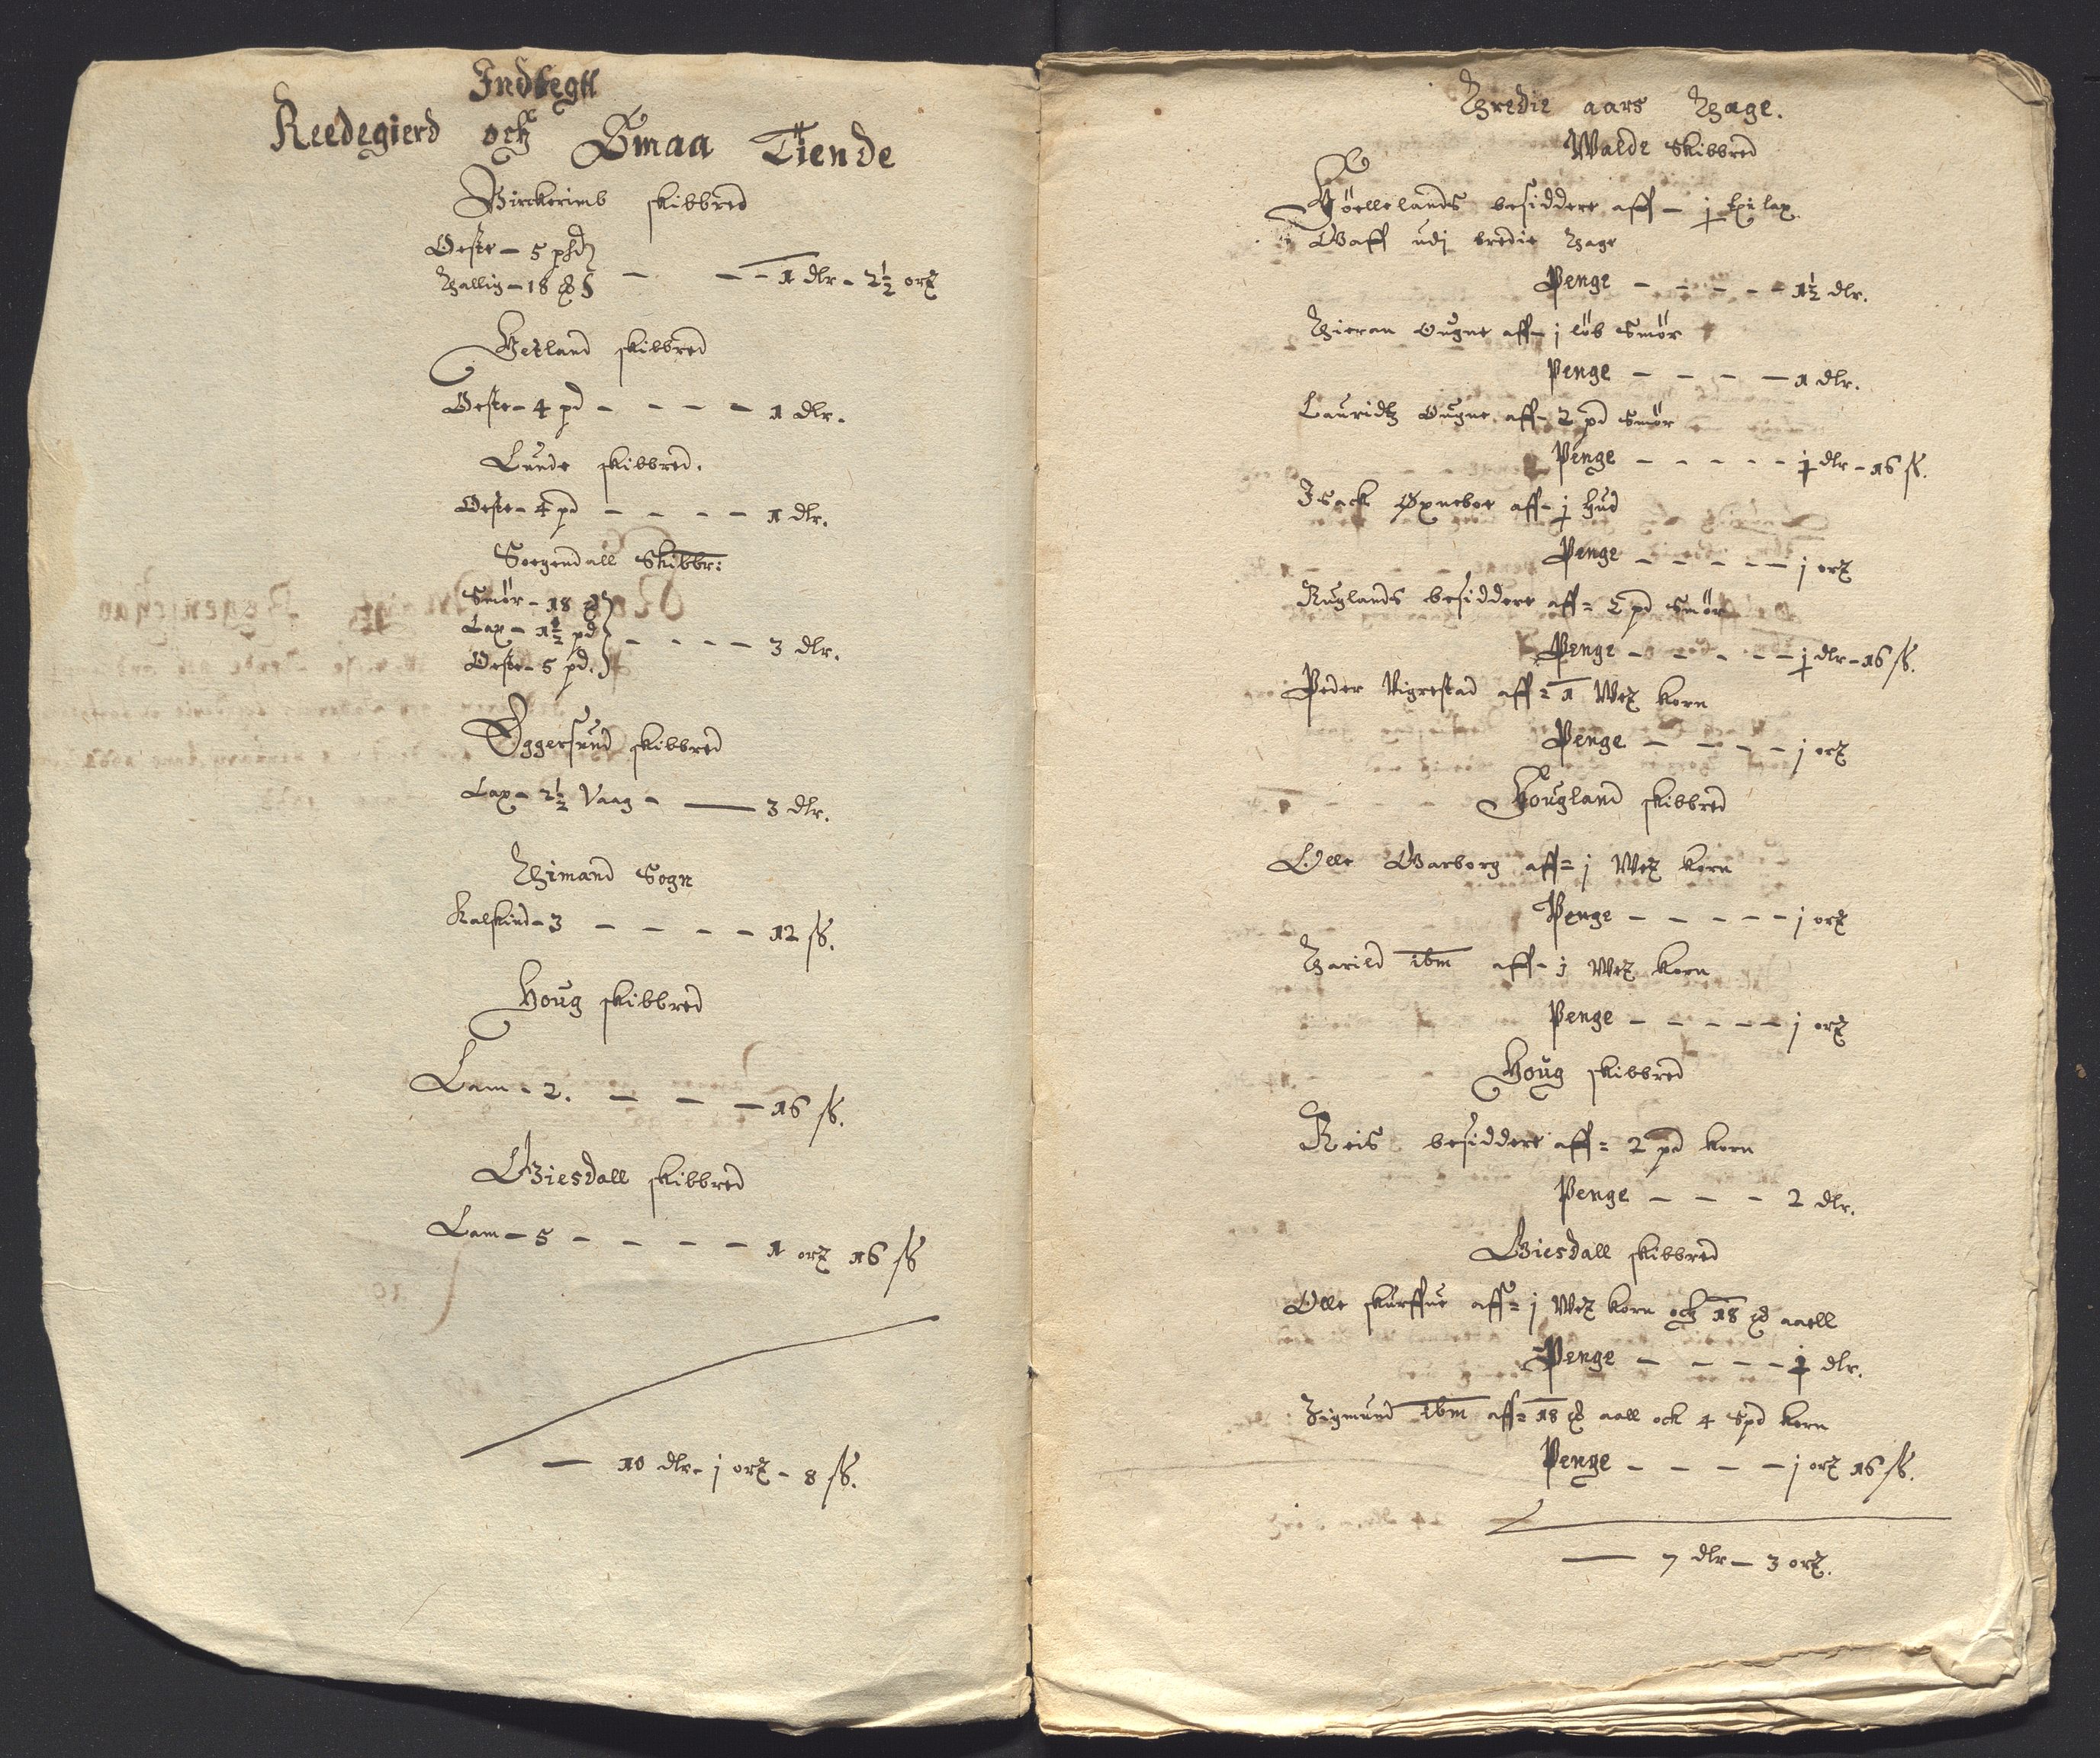 Indtegtt
Reedegierd och Smaa Tiende
Birckerimb skibbred
Oeste - 5 pd
Thallig - 18 ℔ - - - 1 dlr - 2½ ort
Hetland skibbred
Oeste - 4 pd - - - - 1 dlr.
Lunde skibbred.
Oeste - 4 pd - - - - 1 dlr.
Soegendall Skibbr:
Smör - 18 ℔
Lax - 1½ pd - - - - 3 dlr.
Oeste - 5 pd.
Eggersund skibbred
Lax - 2½ Vaag - — 3 dlr.
Thimand Sogn
Kalfskind - 3 - - - - 12 ß.
Houg skibbred
Lam - 2. - - - 16 ß.
Giesdall skibbred
Lam - 5 - - - - - 1 ort 16 ß
— 10 dlr - j ort - 8 ß.
Thredie aars Thage.
Walde Skibbred
Höellelands besiddere aff - j lax
Gaff udj tredie thage
Penge - - - - - 1½ dlr.
Thieran Ougne aff - j löb Smör
Penge - - - - 1 dlr.
Lauridtz Ougne aff - 2 pd Smör
Penge - - - - - j dlr - 16 ß.
Isack Øxneboe aff - j hud
Penge - - - - - j ort
Ruglands besiddere aff = 2 pd Smör
Penge - - - - - j dlr - 16 ß.
Peder Vigrestad aff = 1 Wet korn
Penge - - - - - j ort
Hougland skibbred
Olle Garborg aff = j Wet korn
Penge - - - - - j ort
Tharild ibm aff - j Wet korn
Penge - - - - - j ort
Houg skibbred
Reis besiddere aff = 2 pd korn
Penge - - - 2 dlr.
Giesdall skibbred
Olle skurffue aff = j Wet korn och 18 ℔ aaell
Penge - - - - j dlr.
Sigmund ibm aff = 18 ℔ aall och 4 Spd korn
Penge - - - - j ort 16 ß.
— 7 dlr - 3 ort.